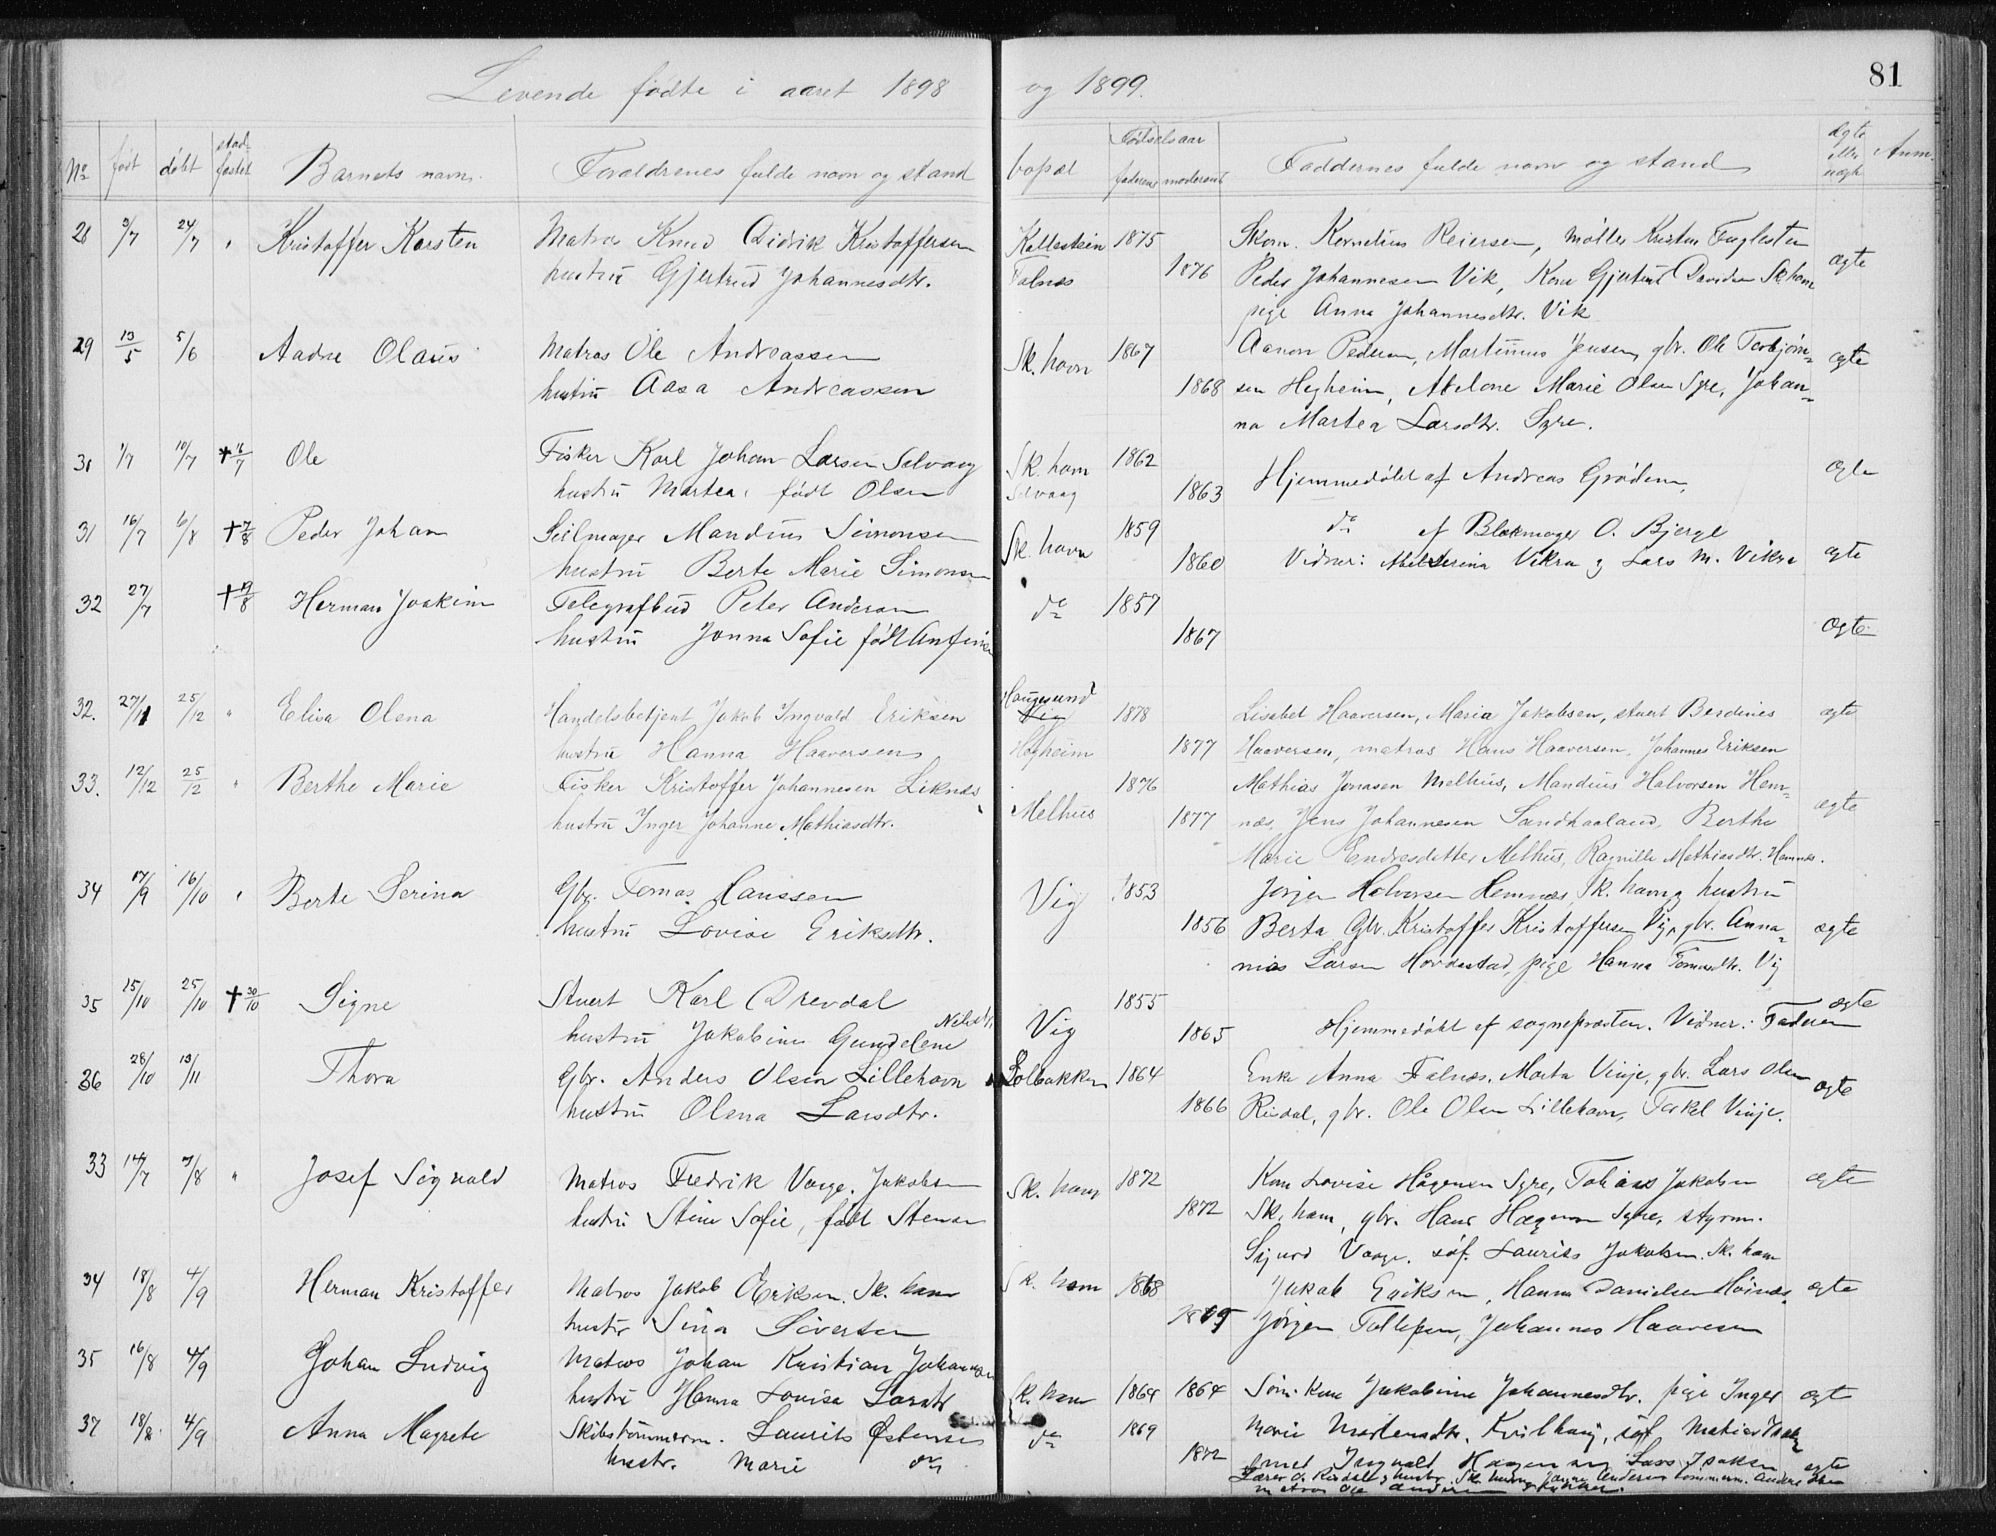 81
Levende fødte i aaret 1898 og 1899.
No født døbt stadfæstet Barnets navn. Forældrenes fulde navn og stand bopæl Fødselsaar faderens moderens Faddernes fulde navn og stand ægte eller uægte Anm.
28 3/7 24/7 " Kristoffer Karsten Matros Knud Didrik Kristoffersen Kallestein 1875 Skom. Kornelius Reiersen, møller Kristen Fuglesten
hustru Gjertrud Johannesdtr. Falnæs 1876 Peder Johannesen Vik, Kone Gjertrud Davidsen Sk.havn ægte
pige Anna Johannesdtr. Vik
29 13/5 5/6 Aadne Olaus Matros Ole Andreassen Sk. havn 1867 Aanon Pedersen, Martinus Jensen, gbr. Ole Torbjørn- ægte
hustru Aasa Andreassen 1868 sen Hegheim, Abelone Marie Olsen Syre, Johan-
na Martea Larsdtr. Syre.
30 1/7 10/7 † 16/7 Ole Fisker Karl Johan Larsen Selvaag Sk. havn 1862 ægte
hustru Martea, født Olsen Selvaag 1863 Hjemmedøbt af Andreas Grødem,
31 16/7 6/8 † 7/8 Peder Johan Seilmager Mandius Simonsen Sk. havn 1859 do af Blokmager O. Bjerge
hustru Berte Marie Simonsen 1860 Vidner: Abelserina Vikra og Lars M. Vikra ægte
32 27/7 † 19/8 Herman Joakim Telegrafbud Peter Andersen do 1857
hustru Jonna Sofie født Anfinsen 1867 ægte
32. 27/11 25/12 " Elisa Olena Handelsbetjent Jakob Ingvald Eriksen Haugesund Vig 1878 Lisabet Haaversen, Maria Jakobsen, stuert Berdines ægte
hustru Hanna Haaversen Hegheim 1877 Haaversen, matros Hans Haaversen, Johannes Eriksen
33. 12/12 25/12 " Berthe Marie Fisker Kristoffer Johannesen Liknæs Melhus 1876 Mathias Jonasen Melhus, Mandius Halvorsen Hem-
hustru Inger Johanne Mathiasdtr. 1877 næs, Jens Johannesen Sandhaaland, Berthe ægte
Marie Endresdatter Melhus, Ragnille Mathiasdtr. Hemnæs.
34 17/9 16/10 " Berte Serina Gbr. Tomas Hanssen Vig 1853 Jørgen Halvorsen Hemnæs, Sk. havn og hustru
hustru Lovise Eriksdtr. 1856 Berta Gbr. Kristoffer Kristoffersen Vig, gbr. Anna- ægte
nias Larsen Hovdastad, pige Hanna Tomasdtr. Vig
35 15/10 25/10 † 30/10 Signe Stuert Karl Drevdal Vig 1855 ægte
hustru Jakobine Gundelene Nilsdtr. 1865 Hjemmedøbt af sognepræsten. Vidner: Faderen
36 28/10 13/11 Thora Gbr. Anders Olsen Lillehavn Solbakken 1864 Enke Anna Falnæs, Marta Vinje, gbr. Lars Olsen ægte
hustru Olena Larsdtr. 1866 Risdal, gbr. Ole Olsen Lillehavn, Torkel Vinje.
33 14/7 7/8 " Josef Sigvald Matros Fredrik Vaage Jakobsen Sk. havn 1872 Kone Lovise Hågensen Syre, Tobias Jakobsen ægte
hustru Stine Sofie, født Stensen 1872 Sk. havn, gbr. Hans Hågensen Syre, styrm.
Sigurd Vaage, søf. Laurits Jakobsen Sk. havn
34 18/8 4/9 Herman Kristoffer Matros Jakob Eriksen. Sk. havn Sk. havn 1868 Jakob Eriksen, Hanna Danielsen Høinæs, ægte
hustr Sina Siversen Jørgen Tollefsen, Johannes Haaversen
35 16/8 4/9 Johan Ludvig Matros Johan Kristian Johannesen
hustru Hanna Lovise Larsdtr Sk. havn 1864 1864 Søm. kone Jakobine Johannesdtr. pige Inger ægte
37 18/8 4/9 Anna Magrete Skibstømmerm. Laurits Østensen do 1869 Marie Mortensdtr. Kvilhaug, søf. Matias
hustr. Marie do 1872 Ingvald Hågensen, Lars Isaksen ægte
Lærer O. Risdal og hustr. Sk. havn, Anderes tømmerm. Anders Olsen
matros Ole Andersen